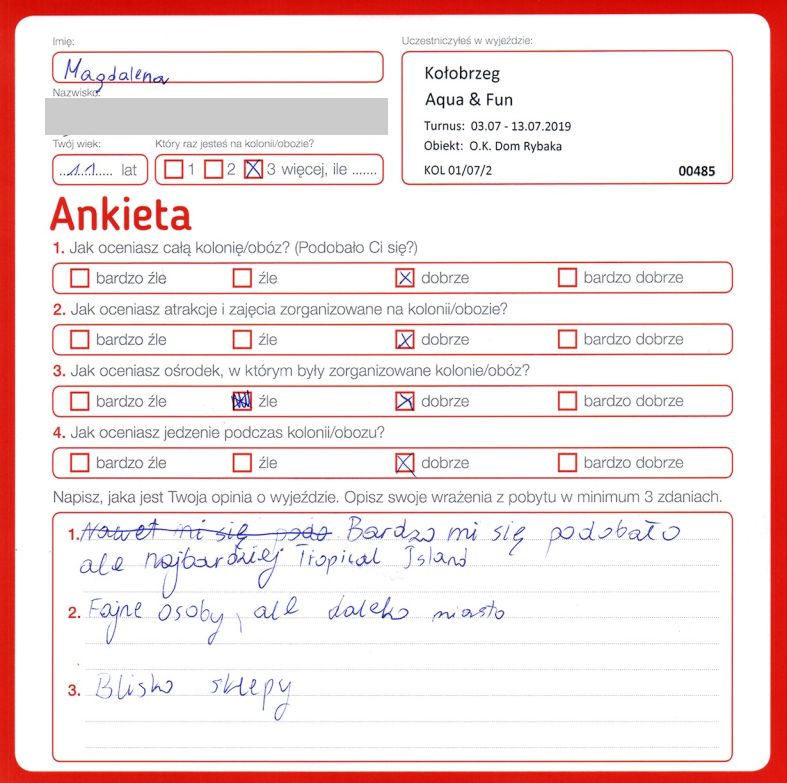 Imię:
Uczestniczyłeś w wyjeździe:
Magdalena
Kołobrzeg
Aqua & Fun
Nazwisko:
Turnus: 03.07 - 13.07.2019
Obiekt: O.K. Dom Rybaka
KOL 01/07/2 00485
Twój wiek:
Który raz jesteś na kolonii/obozie?
..11.... lat
1 2 3 więcej, ile .......
Ankieta
1. Jak oceniasz całą kolonię/obóz? (Podobało Ci się?)
bardzo źle źle dobrze bardzo dobrze
2. Jak oceniasz atrakcje i zajęcia zorganizowane na kolonii/obozie?
bardzo źle źle dobrze bardzo dobrze
3. Jak oceniasz ośrodek, w którym były zorganizowane kolonie/obóz?
bardzo źle źle dobrze bardzo dobrze
4. Jak oceniasz jedzenie podczas kolonii/obozu?
bardzo źle źle dobrze bardzo dobrze
Napisz, jaka jest Twoja opinia o wyjeździe. Opisz swoje wrażenia z pobytu w minimum 3 zdaniach.
1. Nawet mi się podo Bardzo mi się podobało
ale najbardziej Tropical Island
2. Fajne osoby, ale daleko miasto
3. Blisko sklepy